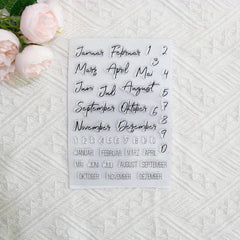 Januar Februar 1 2
3
März April Mai 4
Juni Juli August 5
6
September Oktober 7
8
November Dezember 9
1 2 3 4 5 6 7 8 9 0
JANUAR FEBRUAR MÄRZ APRIL
MAI JUNI JULI AUGUST SEPTEMBER
OKTOBER NOVEMBER DEZEMBER